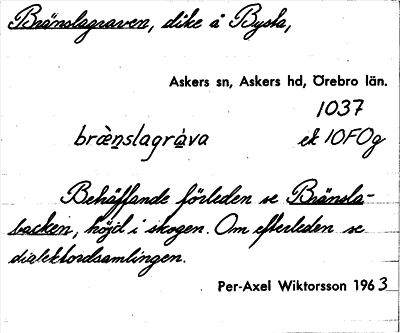 Bränslagraven, dike å Bysta,
Askers sn, Askers hd, Örebro län.
1037
brænslagrava ek 10F0g
Behäffande förleden se Bränsla-
backen, höjd i skogen. Om efterleden se
dialektordsamlingen.
Per-Axel Wiktorsson 1963